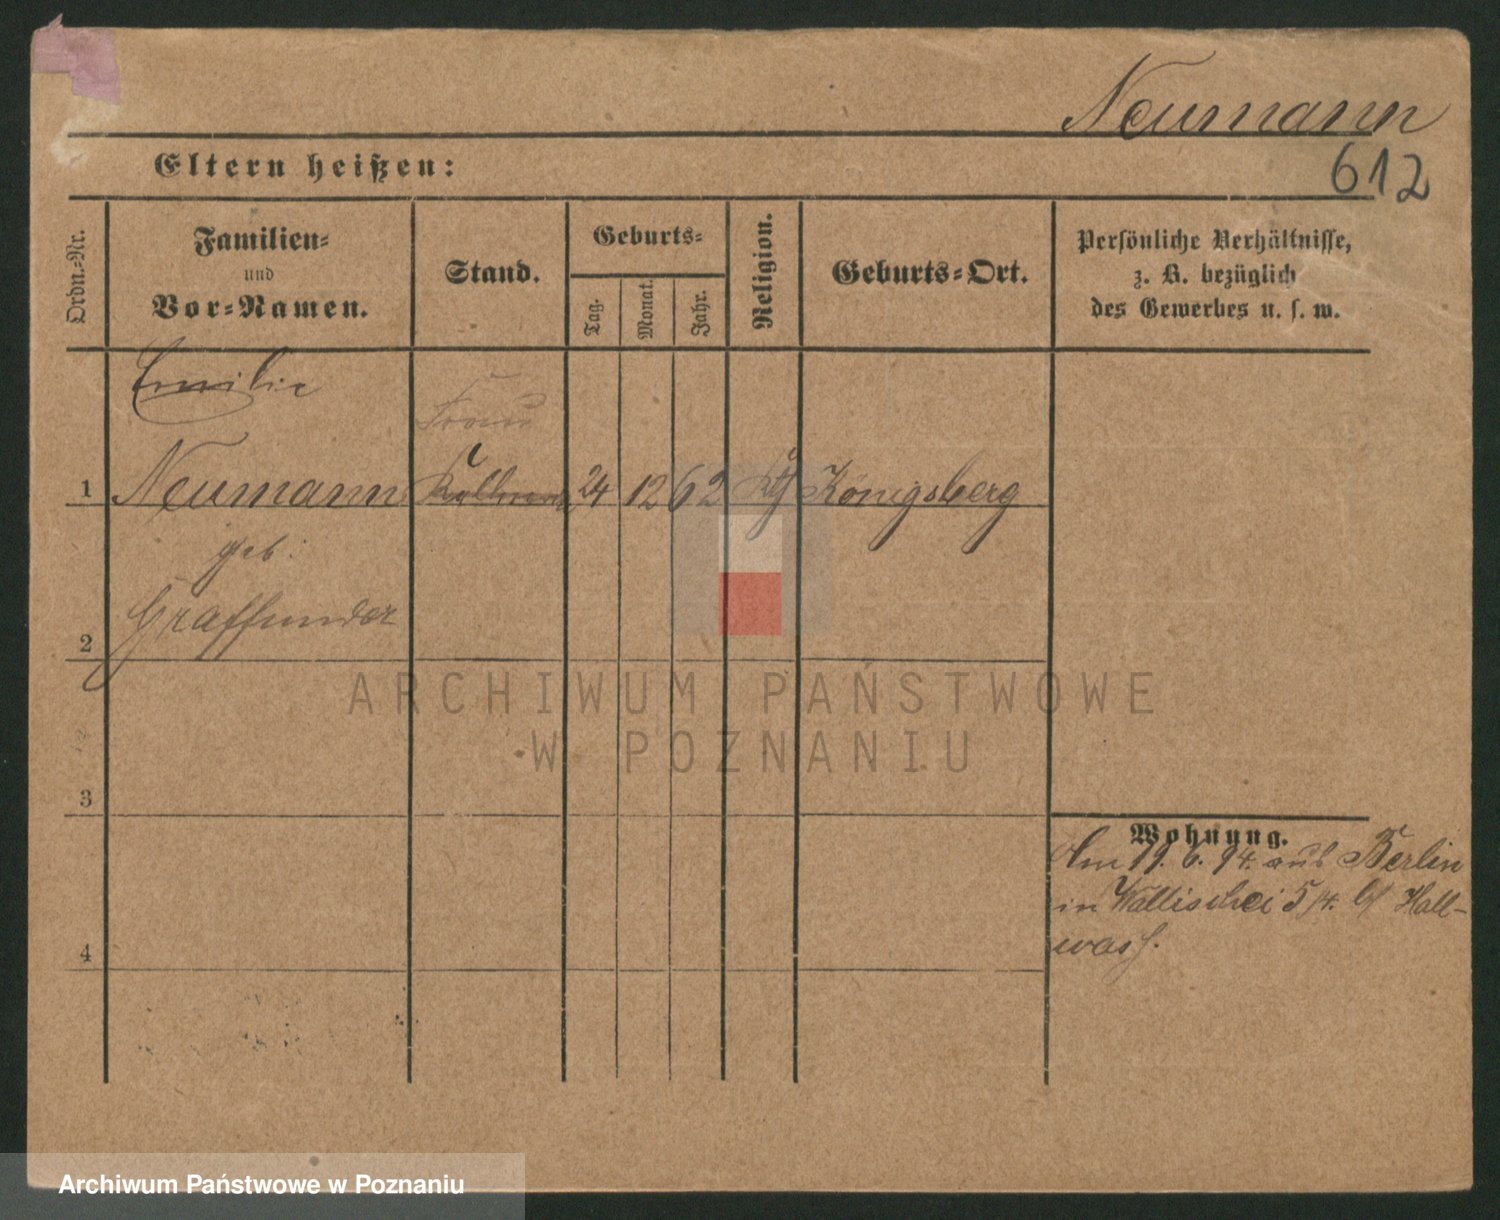 Neumann
612
Eltern heißen:
Ordn.-Nr.
Familien-
und
Vor-Namen.
Stand.
Geburts-
Tag.
Monat.
Jahr.
Religion.
Geburts-Ort.
Persönliche Verhältnisse,
z. B. bezüglich
des Gewerbes u. s. w.
Emilie
Frau
1 Neumann 24 12 62 Königsberg
geb:
2 Graffunder
3
4
Wohnung.
Am 19. 6. 94. aus Berlin
in Wallischei 5/4. b/ Hall-
wass.
ARCHIWUM PAŃSTWOWE
W POZNANIU
Archiwum Państwowe w Poznaniu